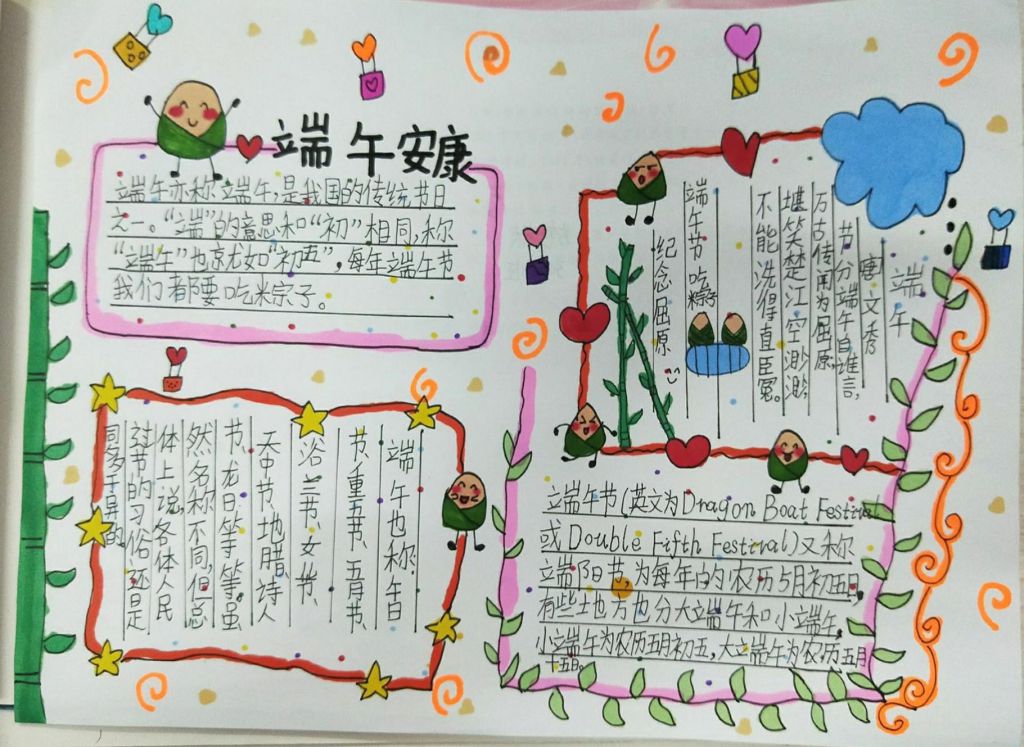 端午安康
端午亦称端午,是我国的传统节日
之一。“端”的意思和“初”相同,称
“端午”也就如“初五”,每年端午节
我们都要吃粽子。
端午
唐 文秀
节分端午自谁言,
万古传闻为屈原,
堪笑楚江空渺渺,
不能洗得直臣冤。
端午节 吃粽子
纪念屈原
端午也称午日
节、重五节、五月节、
浴兰节、女儿节、
天中节、地腊、诗人
节、龙日、等等。虽
然名称不同,但总
体上说,各体人民
过节的习俗还是
同多于异的
端午节(英文为Dragon Boat Festival
或Double Fifth Festival)又称
端阳节,为每年的农历5月初五,
有些地方也分大端午和小端午。
小端午为农历五月初五,大端午为农历五月
十五日。